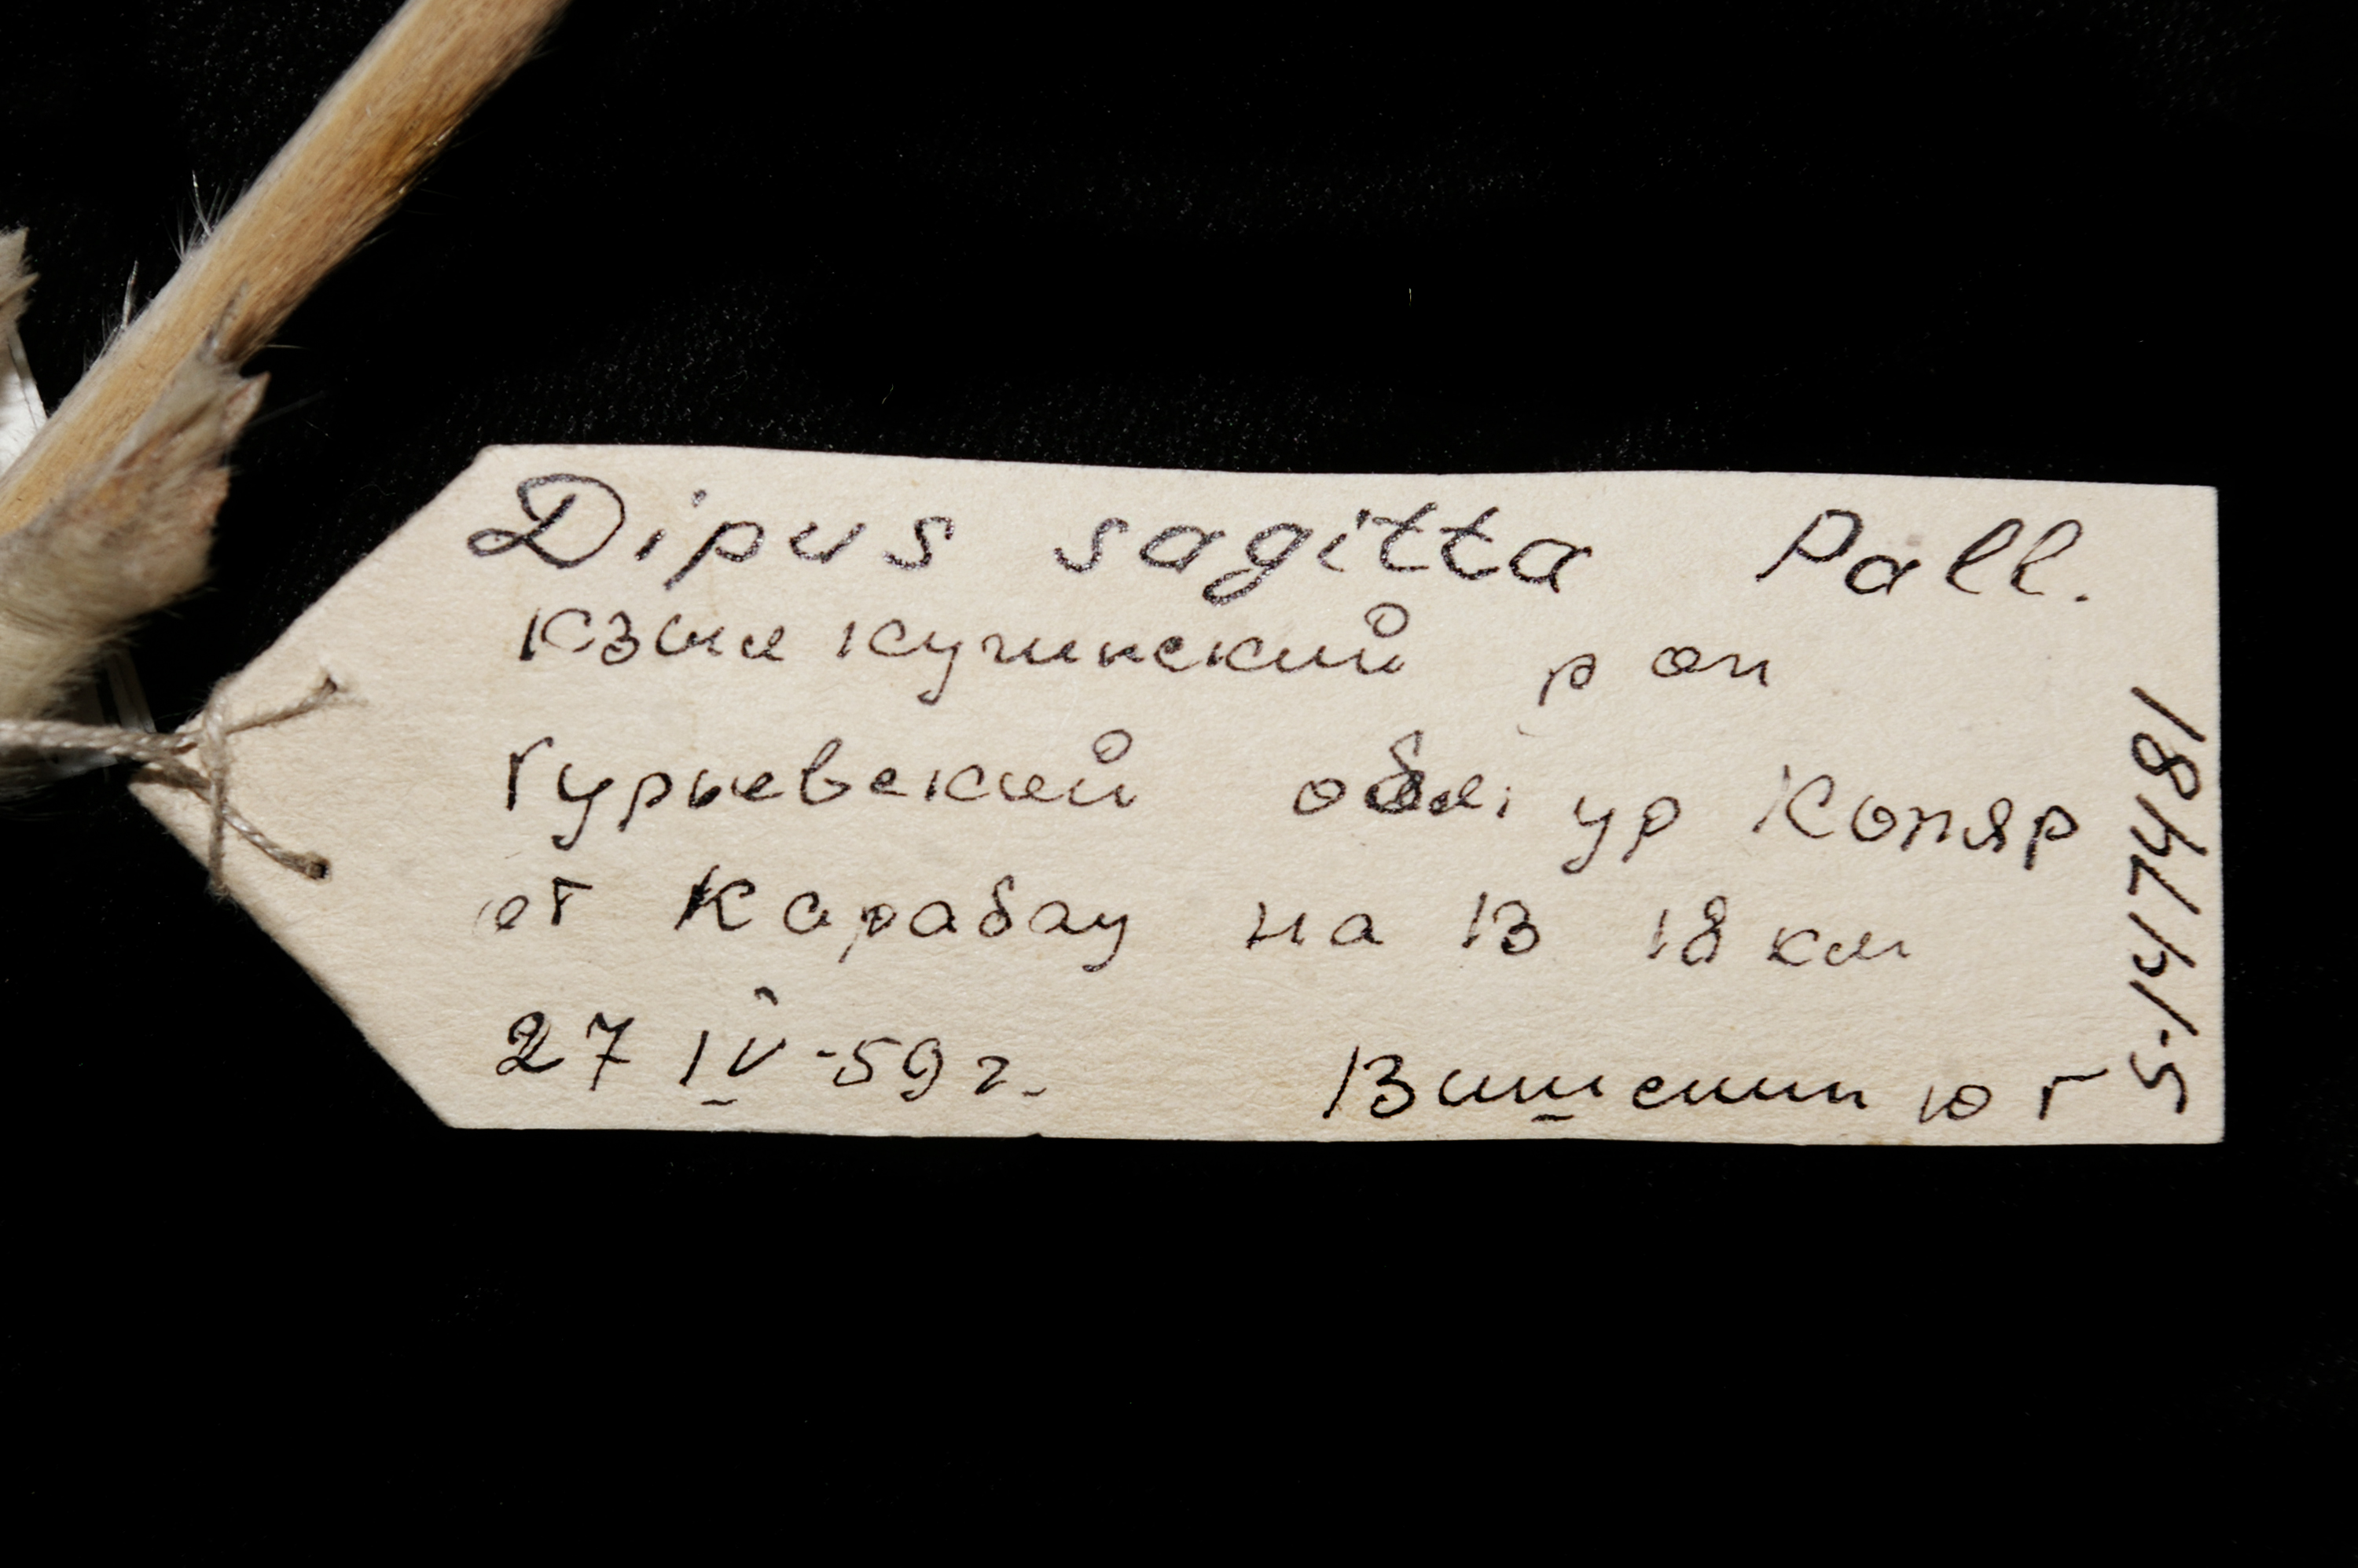 Dipus sagitta Pall.
Кзыл кугинский р он
Гурьевской обл. ур Копяр
от Карабау на В 18 км
27 IV-59г.
Вишенин ю Г
S-147481